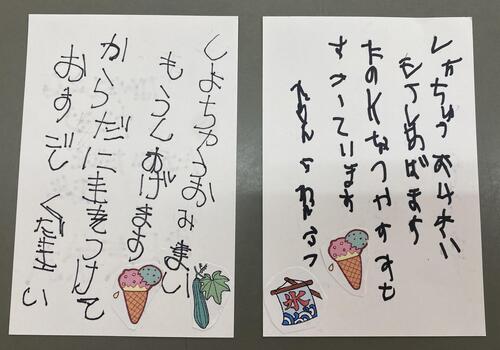 しょちゅうおみまい
もうしあげます
からだにきをつけて
おすごしください
しょちゅうおみまい
もうしあげます
たのしくなつやすみも
すごしています
氷